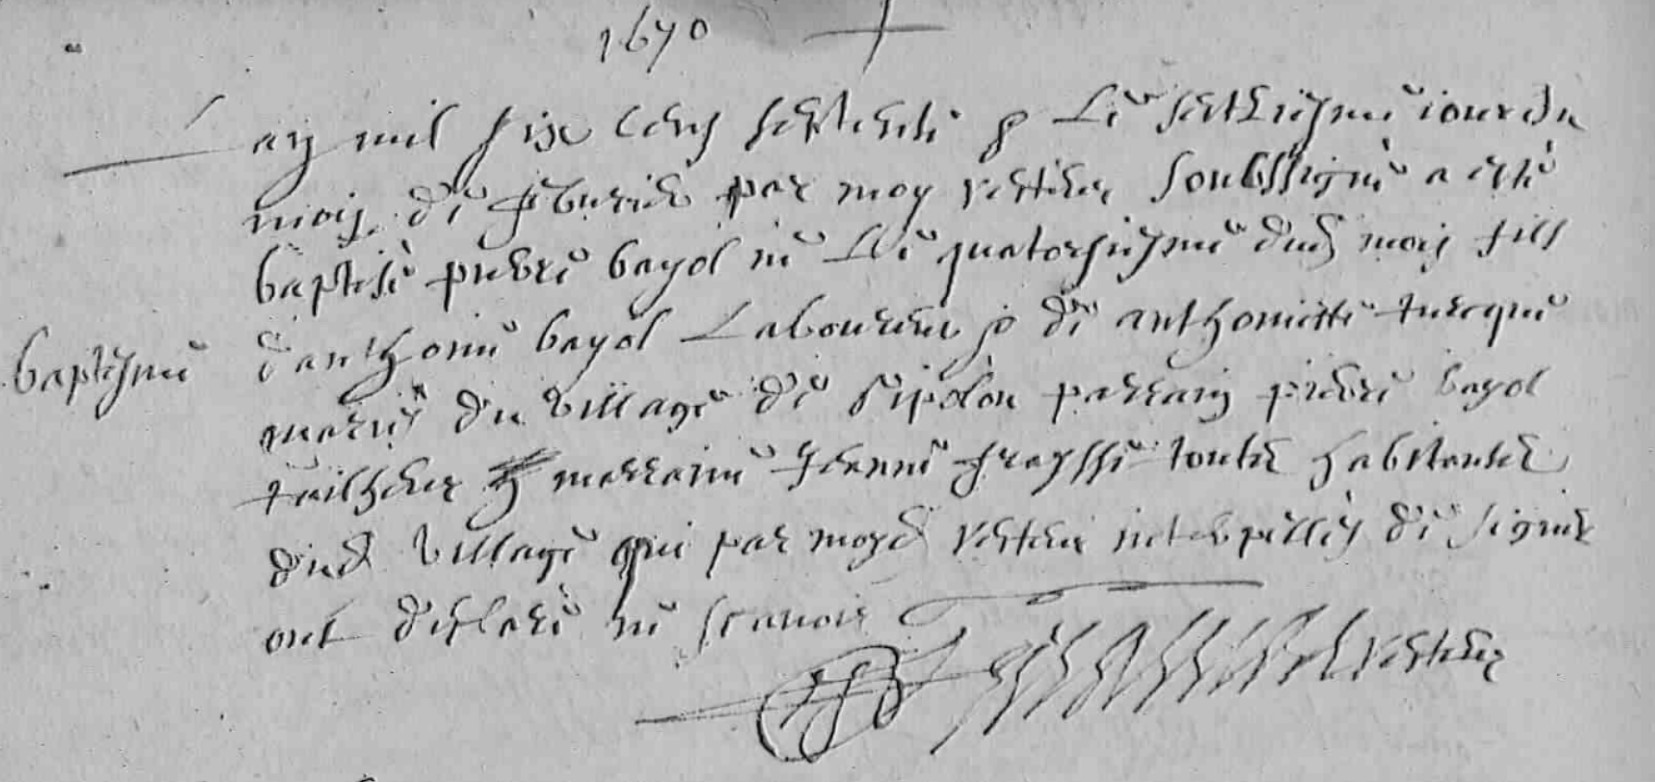 1670
Lan mil six cens septente & le seitziesme jour du
mois de febvrier par moy recteur soubssigné a esté
baptisé pierre bayol né le quatorsiesme dud mois fils
baptesme
d'anthoine bayol laboureur & de anthoinette turcque
mariés du village de parrain pierre bayol
tailheur & marraine Jeanne frayssé toutz habitants
dud village qui par moyd recteur interpellés de signer
ont desclaré ne scavoir
recteur